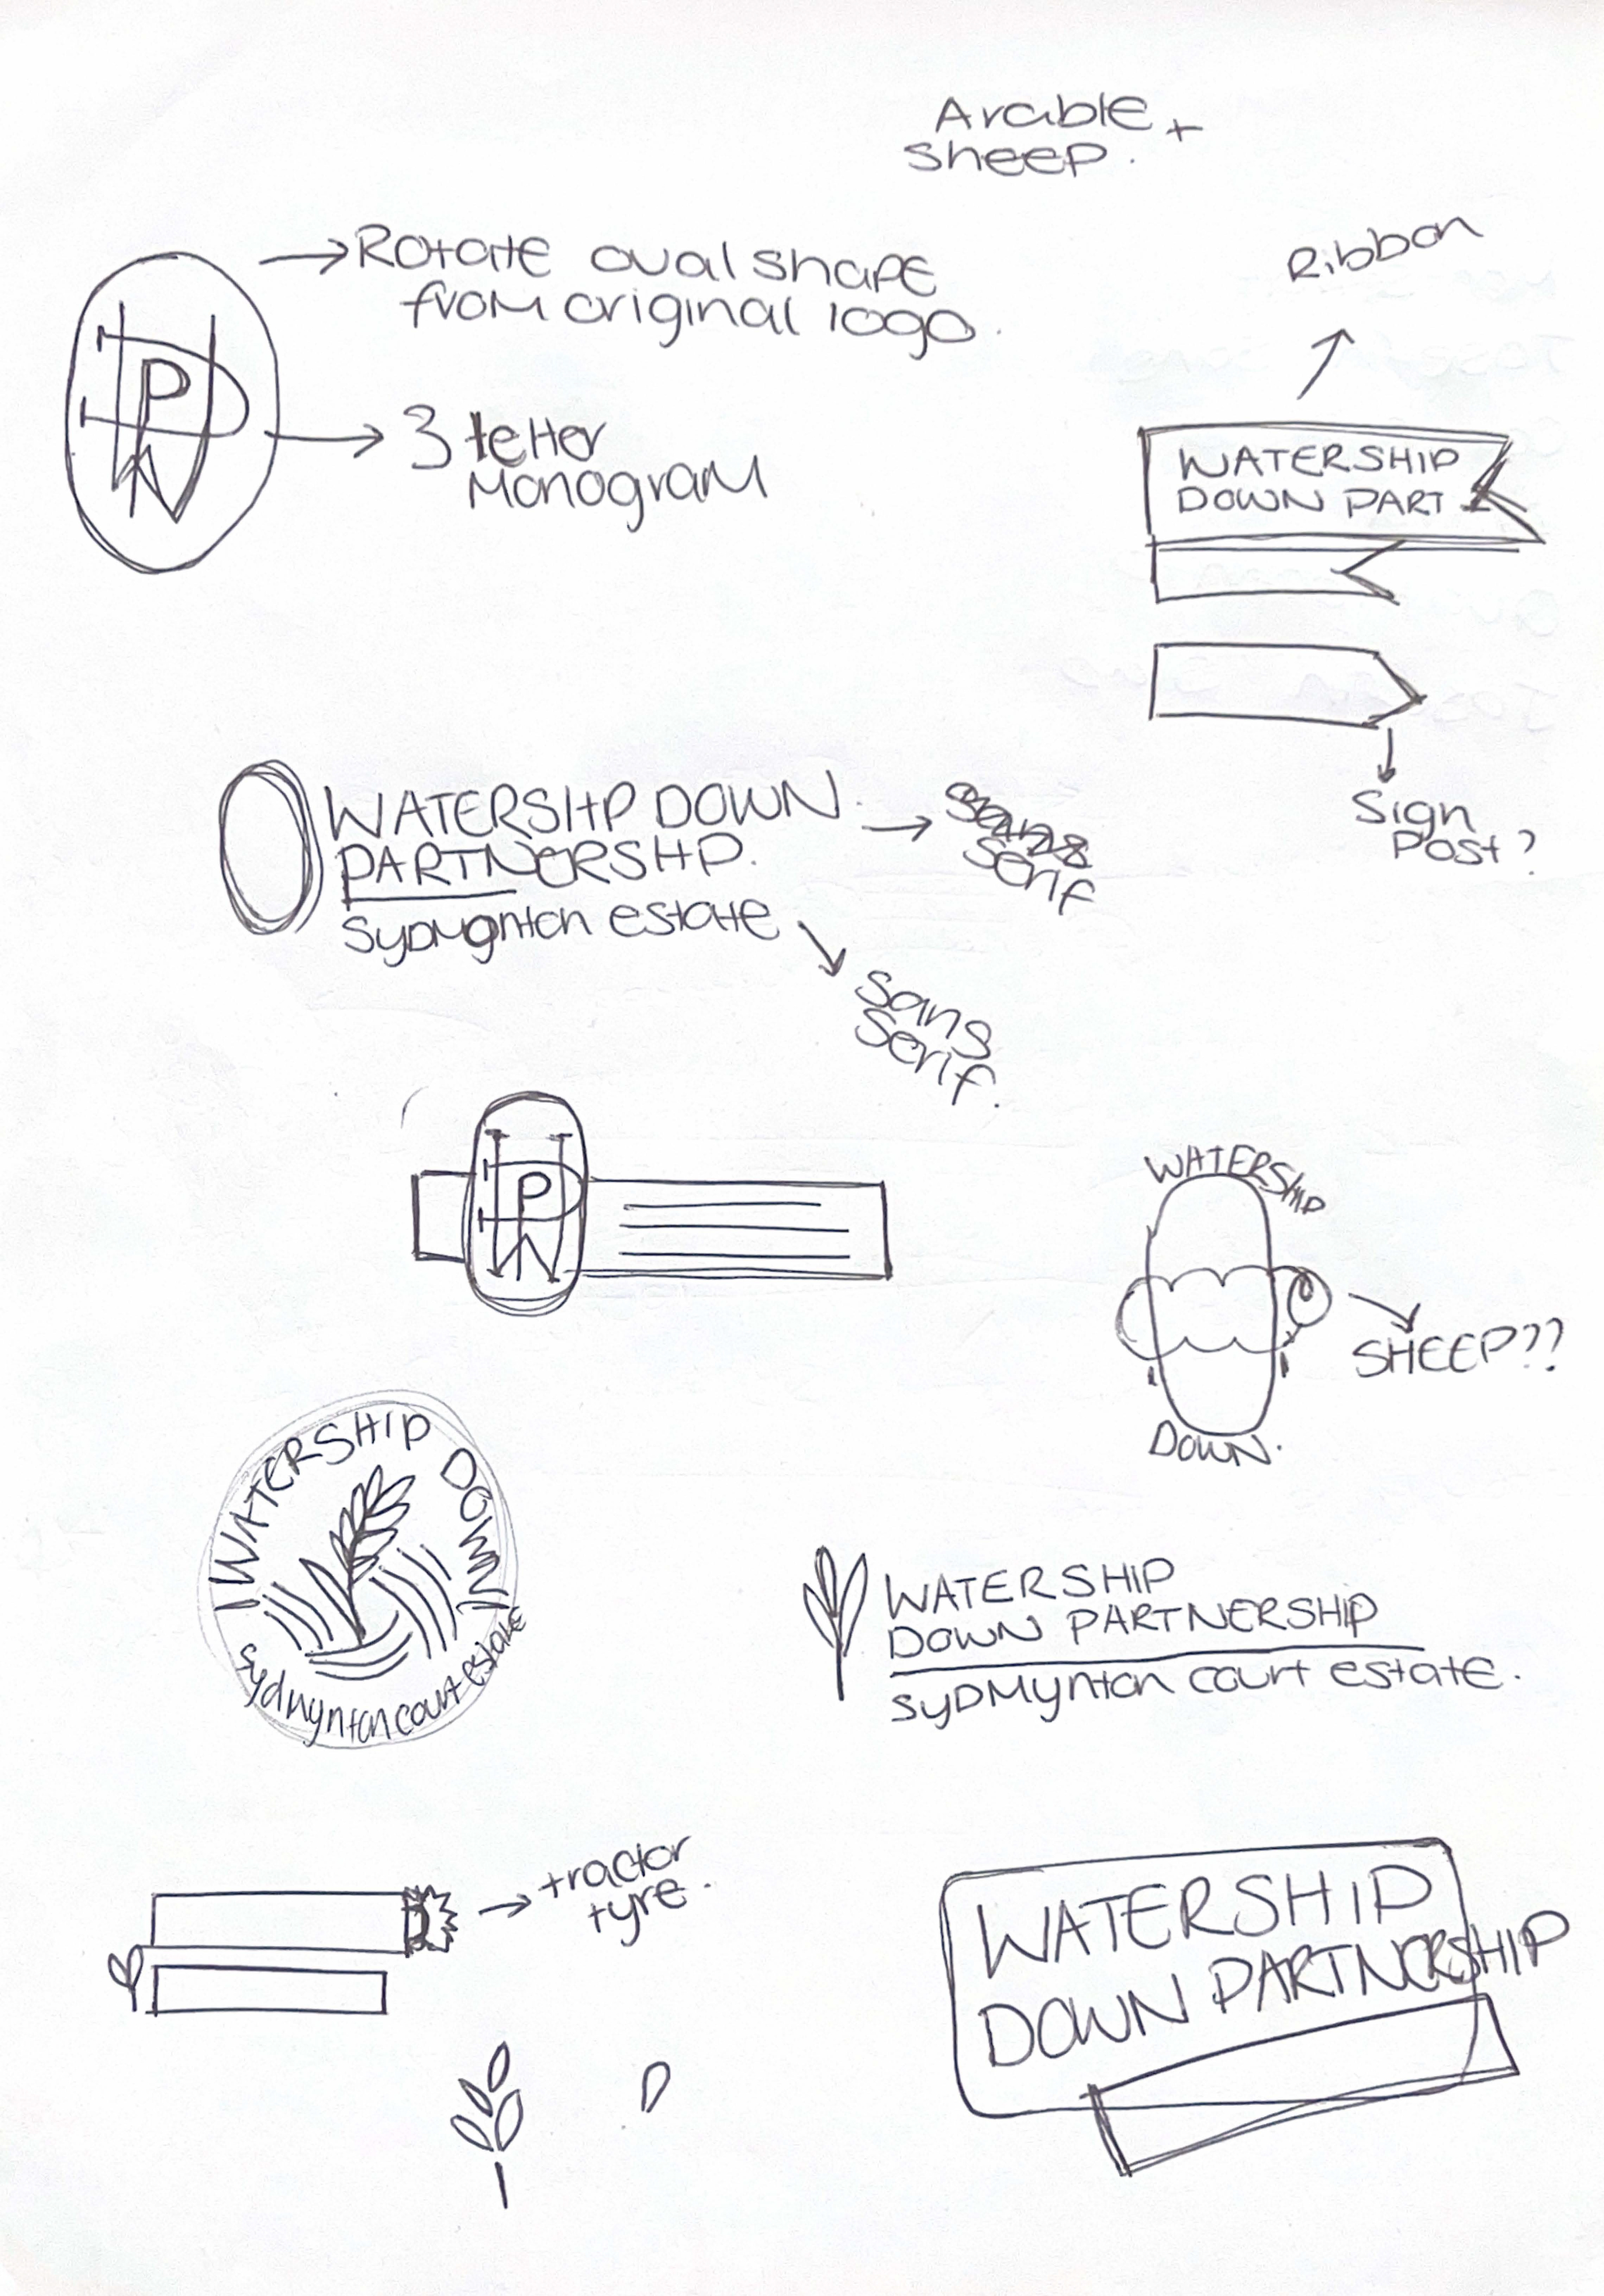 Arable +
sheep.
Rotate oval shape
from original logo.
WDP
3 letter
Monogram
Ribbon
WATERSHIP
DOWN PART
Sign
Post?
WATERSHP DOWN.
PARTNERSHP.
Sydmgnton estate
Serif
Sans
Serif.
WDP
WATERSHIP
DOWN.
SHEEP??
WATERSHIP DOWN
sydmynton court estate
WATERSHIP
DOWN PARTNERSHIP
syDMynton court estate.
tractor
tyre.
WATERSHIP
DOWN PARTNERSHIP